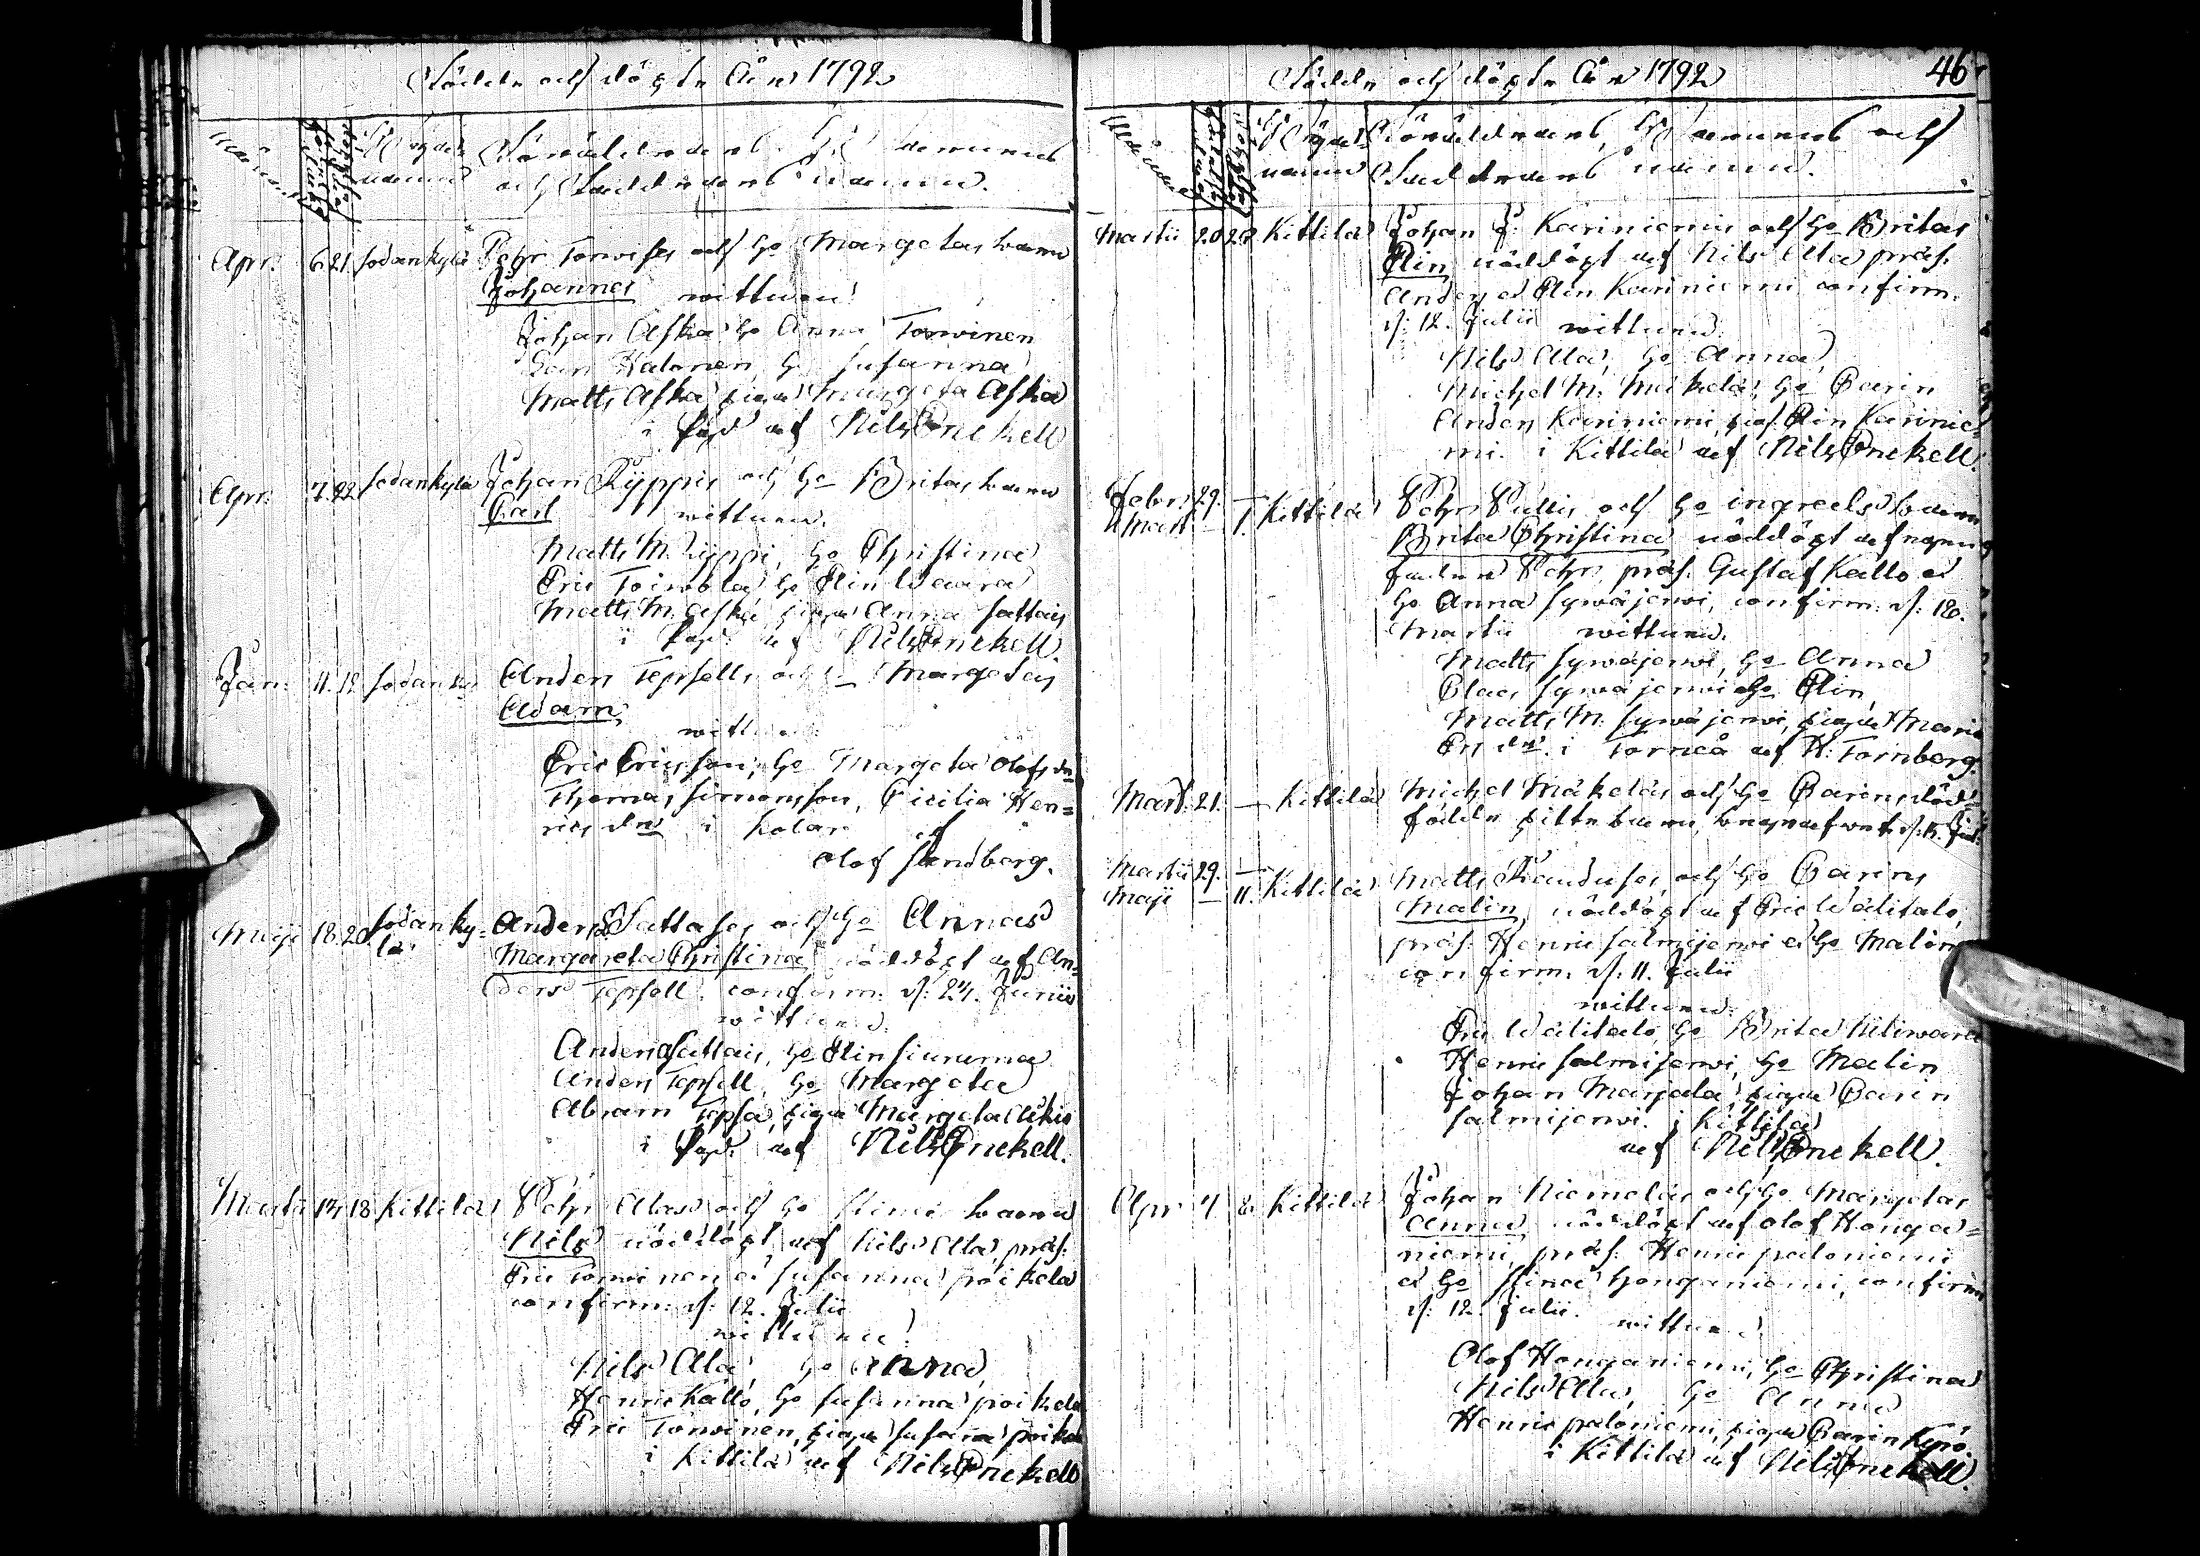 Födde och döpte År 1792
Månad
Byns namn
Föräldrarnes, Barnens
och Faddrarnes namn.
Apr. 6. 21. Sodankylä Pehr Torwises och ho Margetas barn
Johannes wittnen
Johan Aska ho Anna Torwinen
Halonen, ho Susanna
Matts Aska piga Margeta Aska
i af Nils Fnekell
Apr. 7. 22. Sodankylä Johan Kyppis och ho Britas barn
Carl wittnen.
Matts M. Kyppi, ho Christina
Eric Toiwola ho Elin Waara
Matts M. Aska, piga Anna Sattais
i af Nils Fnekell
Jan. 11. 12. Sodank Anders Tepsells och Margetas
Adam,
wittnen
Eric Ericsson, ho Margeta Olofs dr
Thomas Simonsson, Cicilia Hen=
rics dr i Kolare af
Olof Sandberg.
Maji 18. 20. Sodanky=
lä
Anders Sattases och ho Annas
Margareta Christina nöddöpt af An=
ders Tepsell. confirm. d: 24. Junii
wittnen.
Anders Sattais, ho Elin Siuruma
Anders Tepsell, ho Margeta
Abram Tepsa, piga Margeta Akio
i af Nils Fnekell.
Martii 14. 18. Kittilä Pehr Alas och ho Stina barn
Nils nöddöpt af Nils Ala, præs.
Eric Torwinen et Susanna poikela
confirm. d: 12. Julii
wittnen
Nils Ala, ho Anna,
Henric Kallo, ho Susanna poikela
Eric Torwinen, piga Susanna poikela
i Kittilä af Nils Fnekell
Födde och döpte År 1792
46
Månad
Byns
namn
Föräldrarnes, Barnens och
Faddrarnes namn.
Martii 20 20 Kittilä Johan J. Kariniemis och ho Britas
Elin nöddöpt af Nils Ala præs.
Anders et Elin Kariniemi confirm.
d: 12. Julii wittnen.
Nils Ala, ho Anna,
Michel M. Mäkelä, ho Carin
Anders Kariniemi, pig. Elin Karinie=
mi. i Kittilä af Nils Fnekell.
Febr. 29. —
Mart — 1. Kittilä
Pehr Pullis och ho ingreels barn
Brita Christina nöddöpt af egen
fadren Pehr, præs. Gustaf Kallo et
ho Anna Sywäjerwi, confirm. d: 18.
Martii wittnen.
Matts Sywäjerwi, ho Anna
Claes Sywäjerwi ho Elin,
Matts M. Sywäjerwi, piga Maria
Ers dr. i Torneå af H: Tornberg.
Mart. 21. — Kittilä Michel Mäkeläs och ho Carins död=
födde gitte barn, begrafwet d: 15. Jul.
Martii 29. —
Maji — 11. Kittilä
Matts Randuses, och ho Carins
Malin, nöddöpt af Eric Wälitalo,
præs. Henric Salmijerwi et ho Malin
confirm. d: 11. Julii
wittnen.
Eric Wälitalo, ho Brita Kiliwaara
Henric Salmijerwi, ho Malin
Johan Marjala, piga Carin
Salmijerwi. i Kittilä
af Nils Fnekell.
Apr. 4. 8. Kittilä Johan Niemeläs och ho Margetas
Anna, nöddöpt af Olof Honga=
niemi, præs. Henric paloniemi
et ho Stina honganiemi, confirm.
d: 12. Julii. wittnen
Olof Honganiemi, ho Christina
Nils Ala, ho Anna
Henric paloniemi, piga Carin Kepo
i Kittilä af Nils Fnekell.